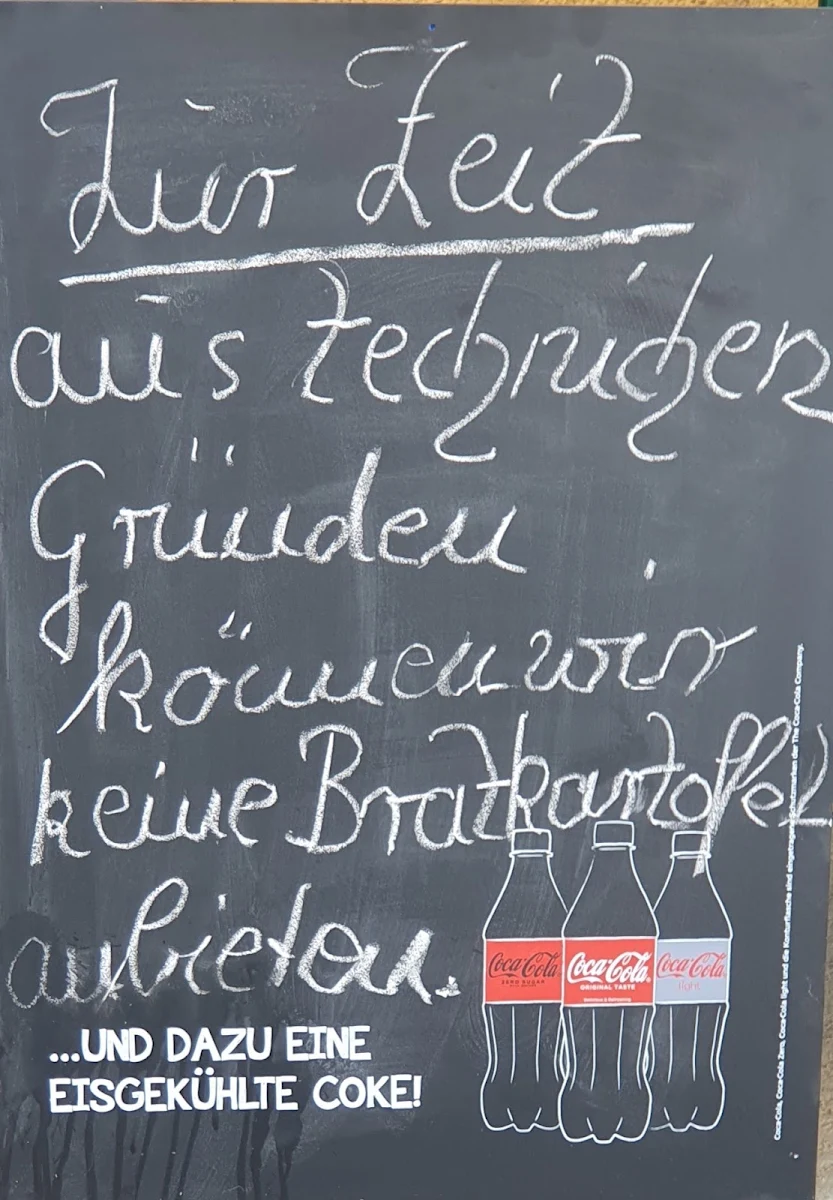 Zur Zeit
aus technichen
Gründen
können wir
keine Bratkartoffel
anbieten.
...UND DAZU EINE
EISGEKÜHLTE COKE!
Coca-Cola
ZERO SUGAR
Coca-Cola
ORIGINAL TASTE
Delicious & Refreshing
Coca-Cola
light
Coca-Cola, Coca-Cola Zero, Coca-Cola light und die Konturflasche sind eingetragene Schutzmarken der The Coca-Cola Company.